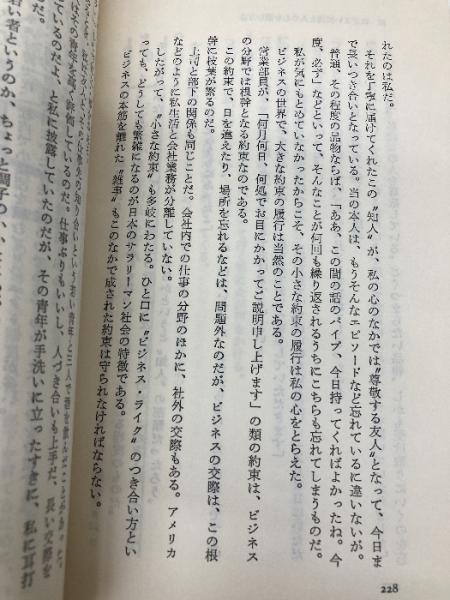 れたのは私だ。
それを丁寧に届けてくれたこの〝知人〟が、私の心のなかでは〝尊敬する友人〟となって、今日ま
で長いつき合いとなっている。当の本人は、もうそんなエピソードなど忘れているに違いないが。
普通、その程度の品物ならば、「ああ、この間の話のパイプ、今日持ってくればよかったね。今
度、必ず」などといって、そんなことが何回も繰り返されるうちにこちらも忘れてしまうものだ。
私が気にもとめていなかったからこそ、その小さな約束の履行は私の心をとらえた。
ビジネスの世界で、大きな約束の履行は当然のことである。
営業部員が、「何月何日、何処でお目にかかってご説明申し上げます」の類の約束は、ビジネス
の分野では根幹となる約束なのである。
この約束で、日を違えたり、場所を忘れるなどは、問題外なのだが、ビジネスの交際は、この根
幹に枝葉が繁るのだ。
上司と部下の関係も同じことだ。会社内での仕事の分野のほかに、社外の交際もある。アメリカ
などのように私生活と会社業務が分離していない。
したがって、〝小さな約束〟も多岐にわたる。ひと口に〝ビジネス・ライク〟のつき合い方とい
っても、どうしても繁雑になるのが日本のサラリーマン社会の特徴である。
ビジネスの本筋を離れた〝雑事〟もこのなかで成された約束は守られなければならない。
228
知り合いという若い青年と三人で酒を飲んだことがあった。
はその青年を高く評価しているのだ。仕事ぶりもいいし、人づき合いも上手だ、長い交際を
ているのだ、と私に披露していたのだが、その青年が手洗いに立ったすきに、私に耳打
い者というのか、ちょっと調子の